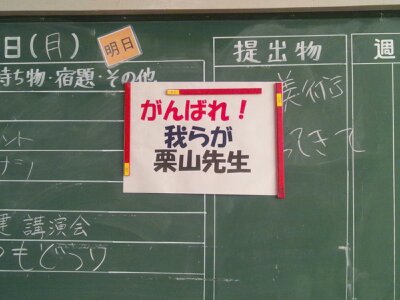 日(月)
明日
提出物
週
持ち物・宿題・その他
がんばれ!
我らが
栗山先生
美術
ってきて
講演会
もどり